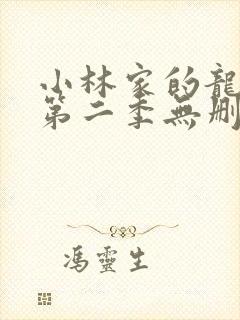 小林家的龍
第二季無刪
馮靈生